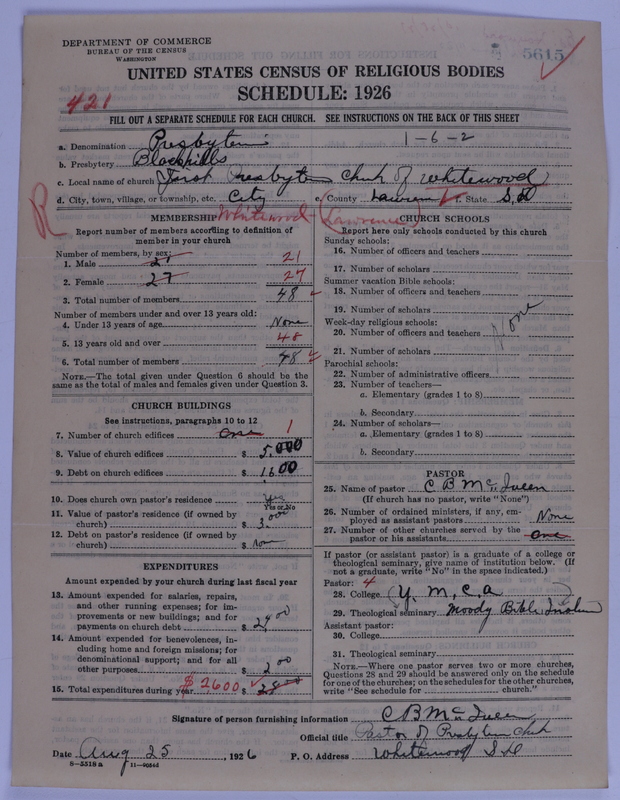 DEPARTMENT OF COMMERCE
BUREAU OF THE CENSUS
WASHINGTON
5615
UNITED STATES CENSUS OF RELIGIOUS BODIES
SCHEDULE: 1926
421
FILL OUT A SEPARATE SCHEDULE FOR EACH CHURCH. SEE INSTRUCTIONS ON THE BACK OF THIS SHEET
1-6-2
a. Denomination
b. Presbytery Blackhills
c. Local name of church First Presbyten Chuh of Whitewood
d. City, town, village, or township, etc. City e. County Lawren f. State S.D
R
MEMBERSHIP Whitewood
Report number of members according to definition of member in your church
Number of members, by sex:
1. Male 21 21
2. Female 27 27
3. Total number of members 48
Number of members under and over 13 years old:
4. Under 13 years of age None
5. 13 years old and over 48
6. Total number of members 48
NOTE.—The total given under Question 6 should be
same as the total of males and females given under Question 3.
CHURCH BUILDINGS
See instructions, paragraphs 10 to 12
7. Number of church edifices One 1
8. Value of church edifices $ 5,000
9. Debt on church edifices $ 1600
10. Does church own pastor's residence Yes
Yes or No
11. Value of pastor's residence (if owned by
church) $ 3000
12. Debt on pastor's residence (if owned by
church) $ Non
EXPENDITURES
Amount expended by your church during last fiscal year
13. Amount expended for salaries, repairs,
and other running expenses; for im-
provements or new buildings; and for
payments on church debt $ 2400
14. Amount expended for benevolences, in-
cluding home and foreign missions; for
denominational support; and for all
other purposes $ 200
15. Total expenditures during year $2600 $
(Lawrence) CHURCH SCHOOLS
Report here only schools conducted by this church
Sunday schools:
16. Number of officers and teachers
17. Number of scholars
Summer vacation Bible schools:
18. Number of officers and teachers
19. Number of scholars
Week-day religious schools:
20. Number of officers and teachers None
21. Number of scholars
Parochial schools:
22. Number of administrative officers
23. Number of teachers—
a. Elementary (grades 1 to 8)
b. Secondary
24. Number of scholars—
a. Elementary (grades 1 to 8)
b. Secondary
PASTOR
25. Name of pastor C B McQueen
(If church has no pastor, write "None")
26. Number of ordained ministers, if any, em-
ployed as assistant pastors None
27. Number of other churches served by the
pastor or his assistants One
If pastor (or assistant pastor) is a graduate of a college or
theological seminary, give name of institution below. (If
not a graduate, write "No" in the space indicated.)
Pastor: 4
28. College Y.M.C.A
29. Theological seminary Moody Bible
Assistant pastor:
30. College
31. Theological seminary
NOTE.—Where one pastor serves two or more churches,
Questions 28 and 29 should be answered only on the schedule
for one of the churches; on the schedules for the other churches,
write "See schedule for church."
Signature of person furnishing information C B McQueen
Official title Pastor of Presbyten Chuh
Date Aug 25, 1926 P. O. Address Whitewood S D
8-5518 a